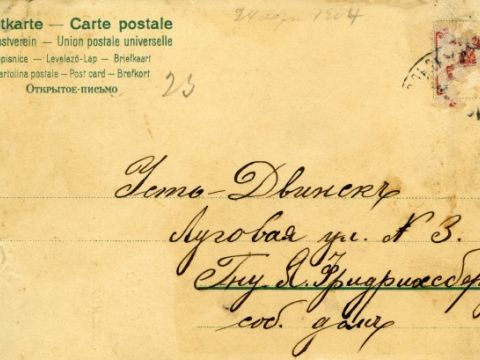 24 1904
stkarte — Carte postale
stverein — Union postale universelle
opisnice — Levelező-Lap — Briefkaart
artolina postale — Post card — Brefkort
Открытое-письмо
23
Усть-Двинскъ
Луговая ул. N 3.
Гну Я. Фридрихсбер
соб. домъ